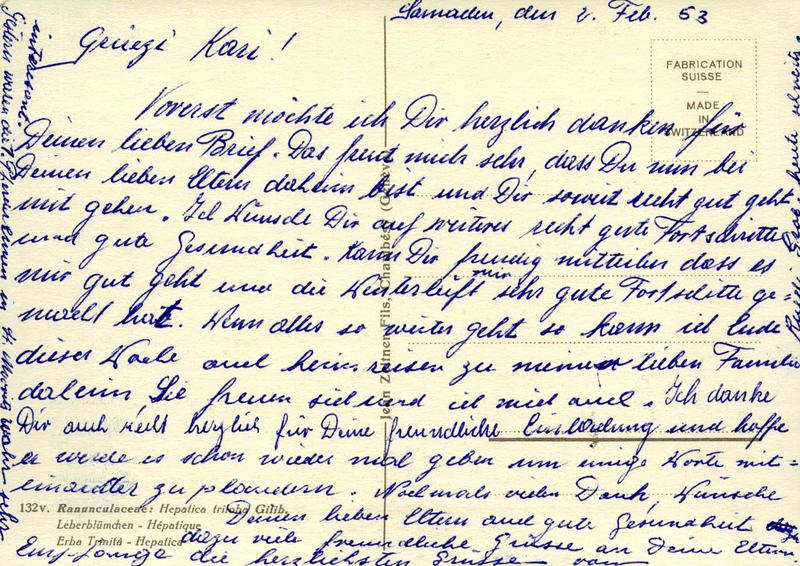 Samaden, den 2. Feb. 53
Grüezi Kari!
FABRICATION
SUISSE
—
MADE
IN
SWITZERLAND
Vorerst möchte ich Dir herzlich danken für
Deinen lieben Brief. Das freut mich sehr, dass Du nun bei
Deinen lieben Eltern daheim bist und Dir soweit recht gut geht
mit gehen. Ich wünsche Dir auf weiteres recht gute Fortschritte
und gute Gesundheit. Kann Dir freudig mitteilen dass es
mir gut geht und die Winterluft mir sehr gute Fortschitte ge-
macht hat. Wenn alles so weiter geht so kann ich Ende
dieser Woche auch heimreisen zu meiner lieben Familie
daheim, Sie freuen sich und ich mich auch. Ich danke
Dir auch recht herzlich für Deine freundliche Einladung und hoffe
er werde es schon wieder mal geben um einige Worte mit-
einander zu plaudern. Nochmals vielen Dank, Wünsche
Deinen lieben Eltern auch gute Gesundheit
dazu viele freundliche Grüsse an Deine Eltern.
Empfange die herzlichsten Grüsse von
132v. Ranunculaceae: Hepatica triloba Gilib.
Leberblümchen - Hépatique
Erba Trinità - Hepatica
Jean Zeitner Fils, Chambésy (Genève)
Gestern waren die in St. Moritz wahr sehr
interesant.